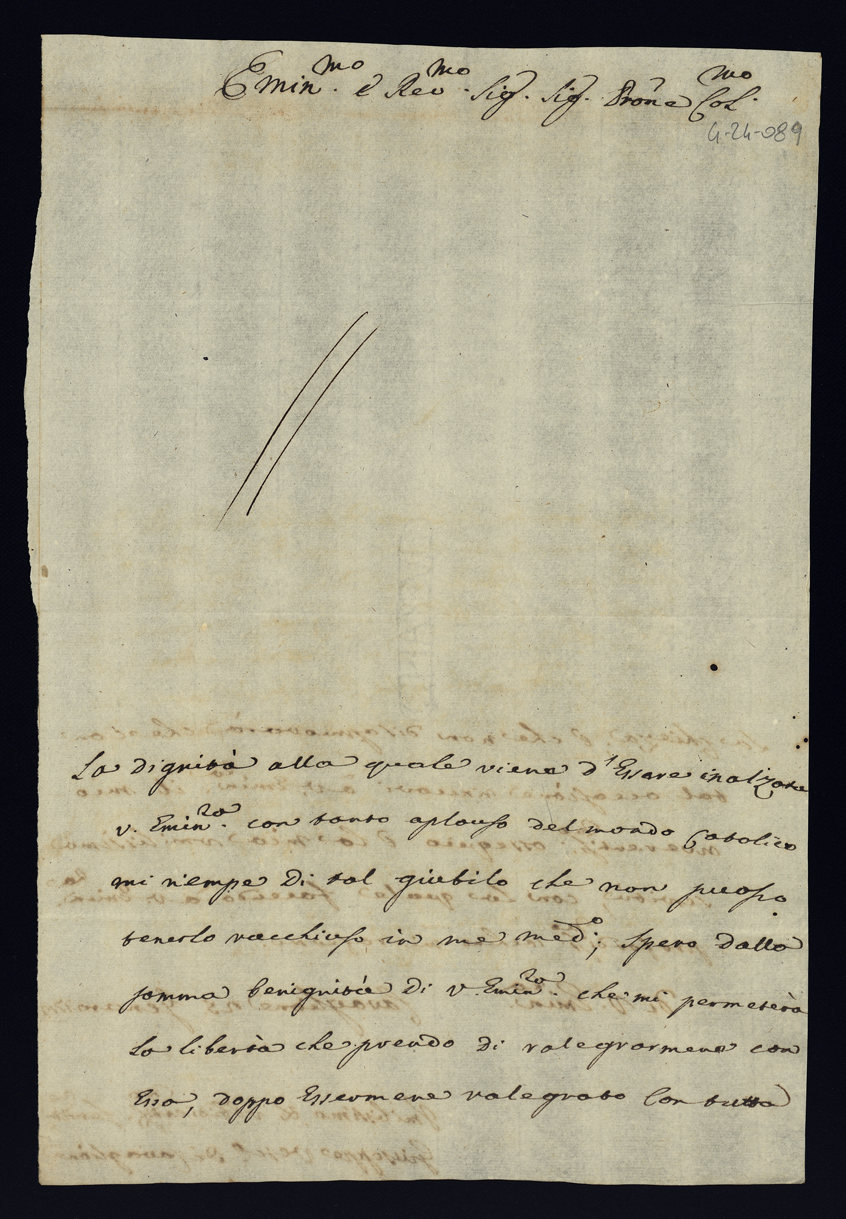 Emin.mo e Rev.mo Sig. Sig. Prōne Col.mo
4-24-089
La dignità alla quale viene d'Essere inalzata
V. Emin.za con tanto aplauso del mondo Catolico
mi riempe di tal giubilo che non puoso
tenerlo racchiuso in me med.o; spero dalla
somma benignità di V. Emin.za che mi permeterà
la libertà che prendo di ralegrarmene con
Essa, doppo Essermene ralegrato con tutta